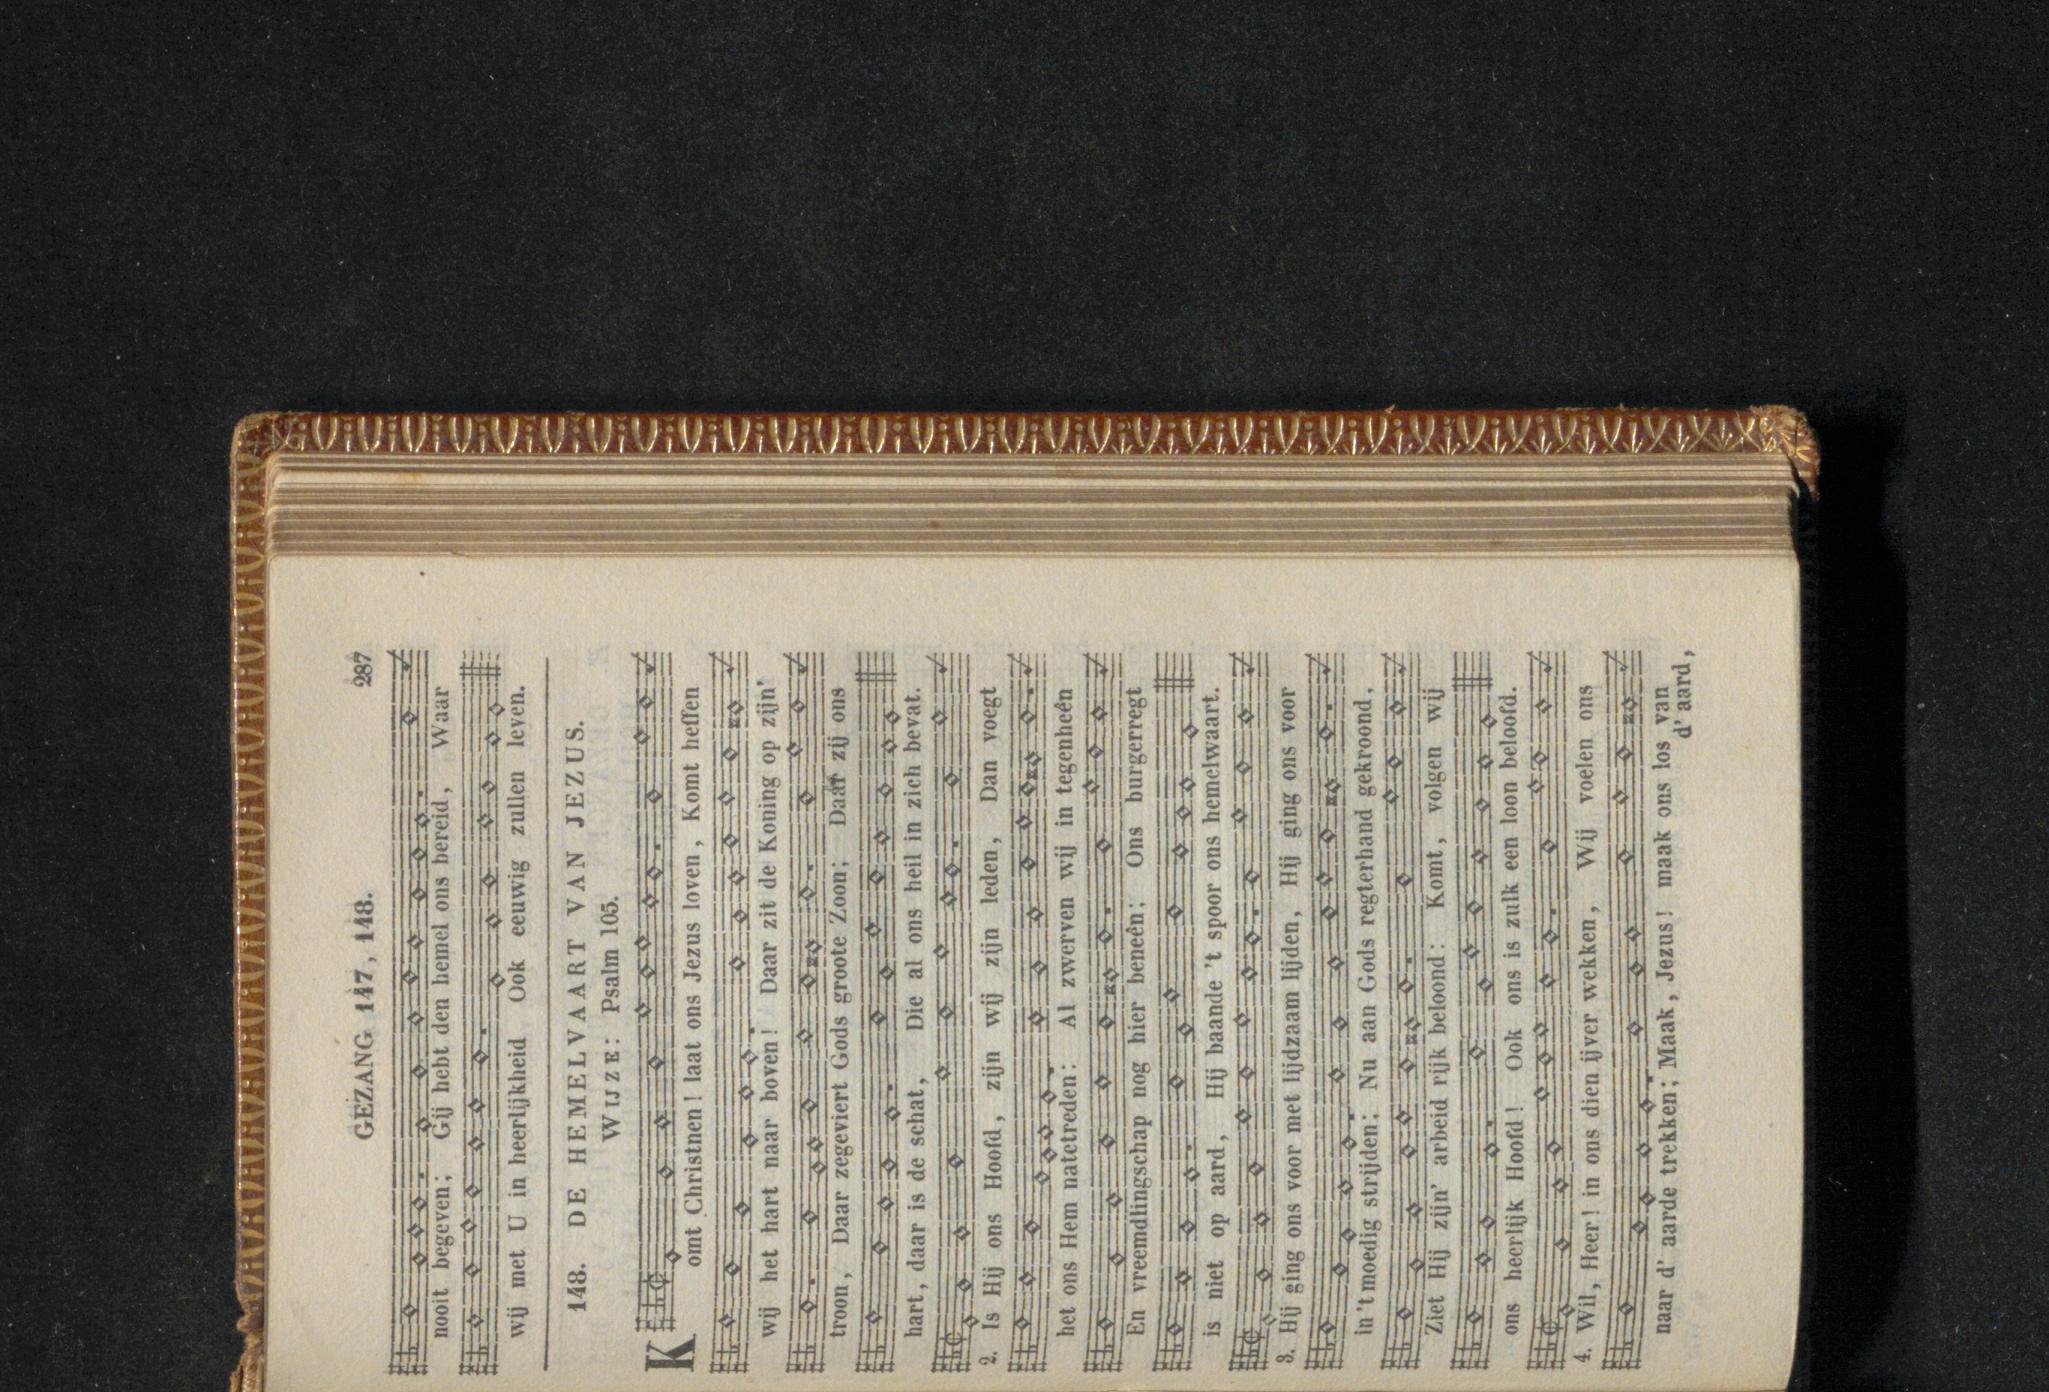 GEZANG 147, 148. 287
nooit begeven; Gij hebt den hemel ons bereid, Waar
wij met U in heerlijkheid Ook eeuwig zullen leven.
148. DE HEMELVAART VAN JEZUS.
WIJZE: Psalm 105.
Komt Christnen! laat ons Jezus loven, Komt heffen
wij het hart naar boven! Daar zit de Koning op zijn'
troon, Daar zegeviert Gods groote Zoon; Daar zij ons
hart, daar is de schat, Die al ons heil in zich bevat.
2. Is Hij ons Hoofd, zijn wij zijn leden, Dan voegt
het ons Hem natetreden: Al zwerven wij in tegenheên
En vreemdlingschap nog hier beneên; Ons burgerregt
is niet op aard, Hij baande 't spoor ons hemelwaart.
3. Hij ging ons voor met lijdzaam lijden, Hij ging ons voor
in 't moedig strijden: Nu aan Gods regterhand gekroond,
Ziet Hij zijn' arbeid rijk beloond: Komt, volgen wij
ons heerlijk Hoofd! Ook ons is zulk een loon beloofd.
4. Wil, Heer! in ons dien ijver wekken, Wij voelen ons
naar d' aarde trekken; Maak, Jezus! maak ons los van
d' aard,